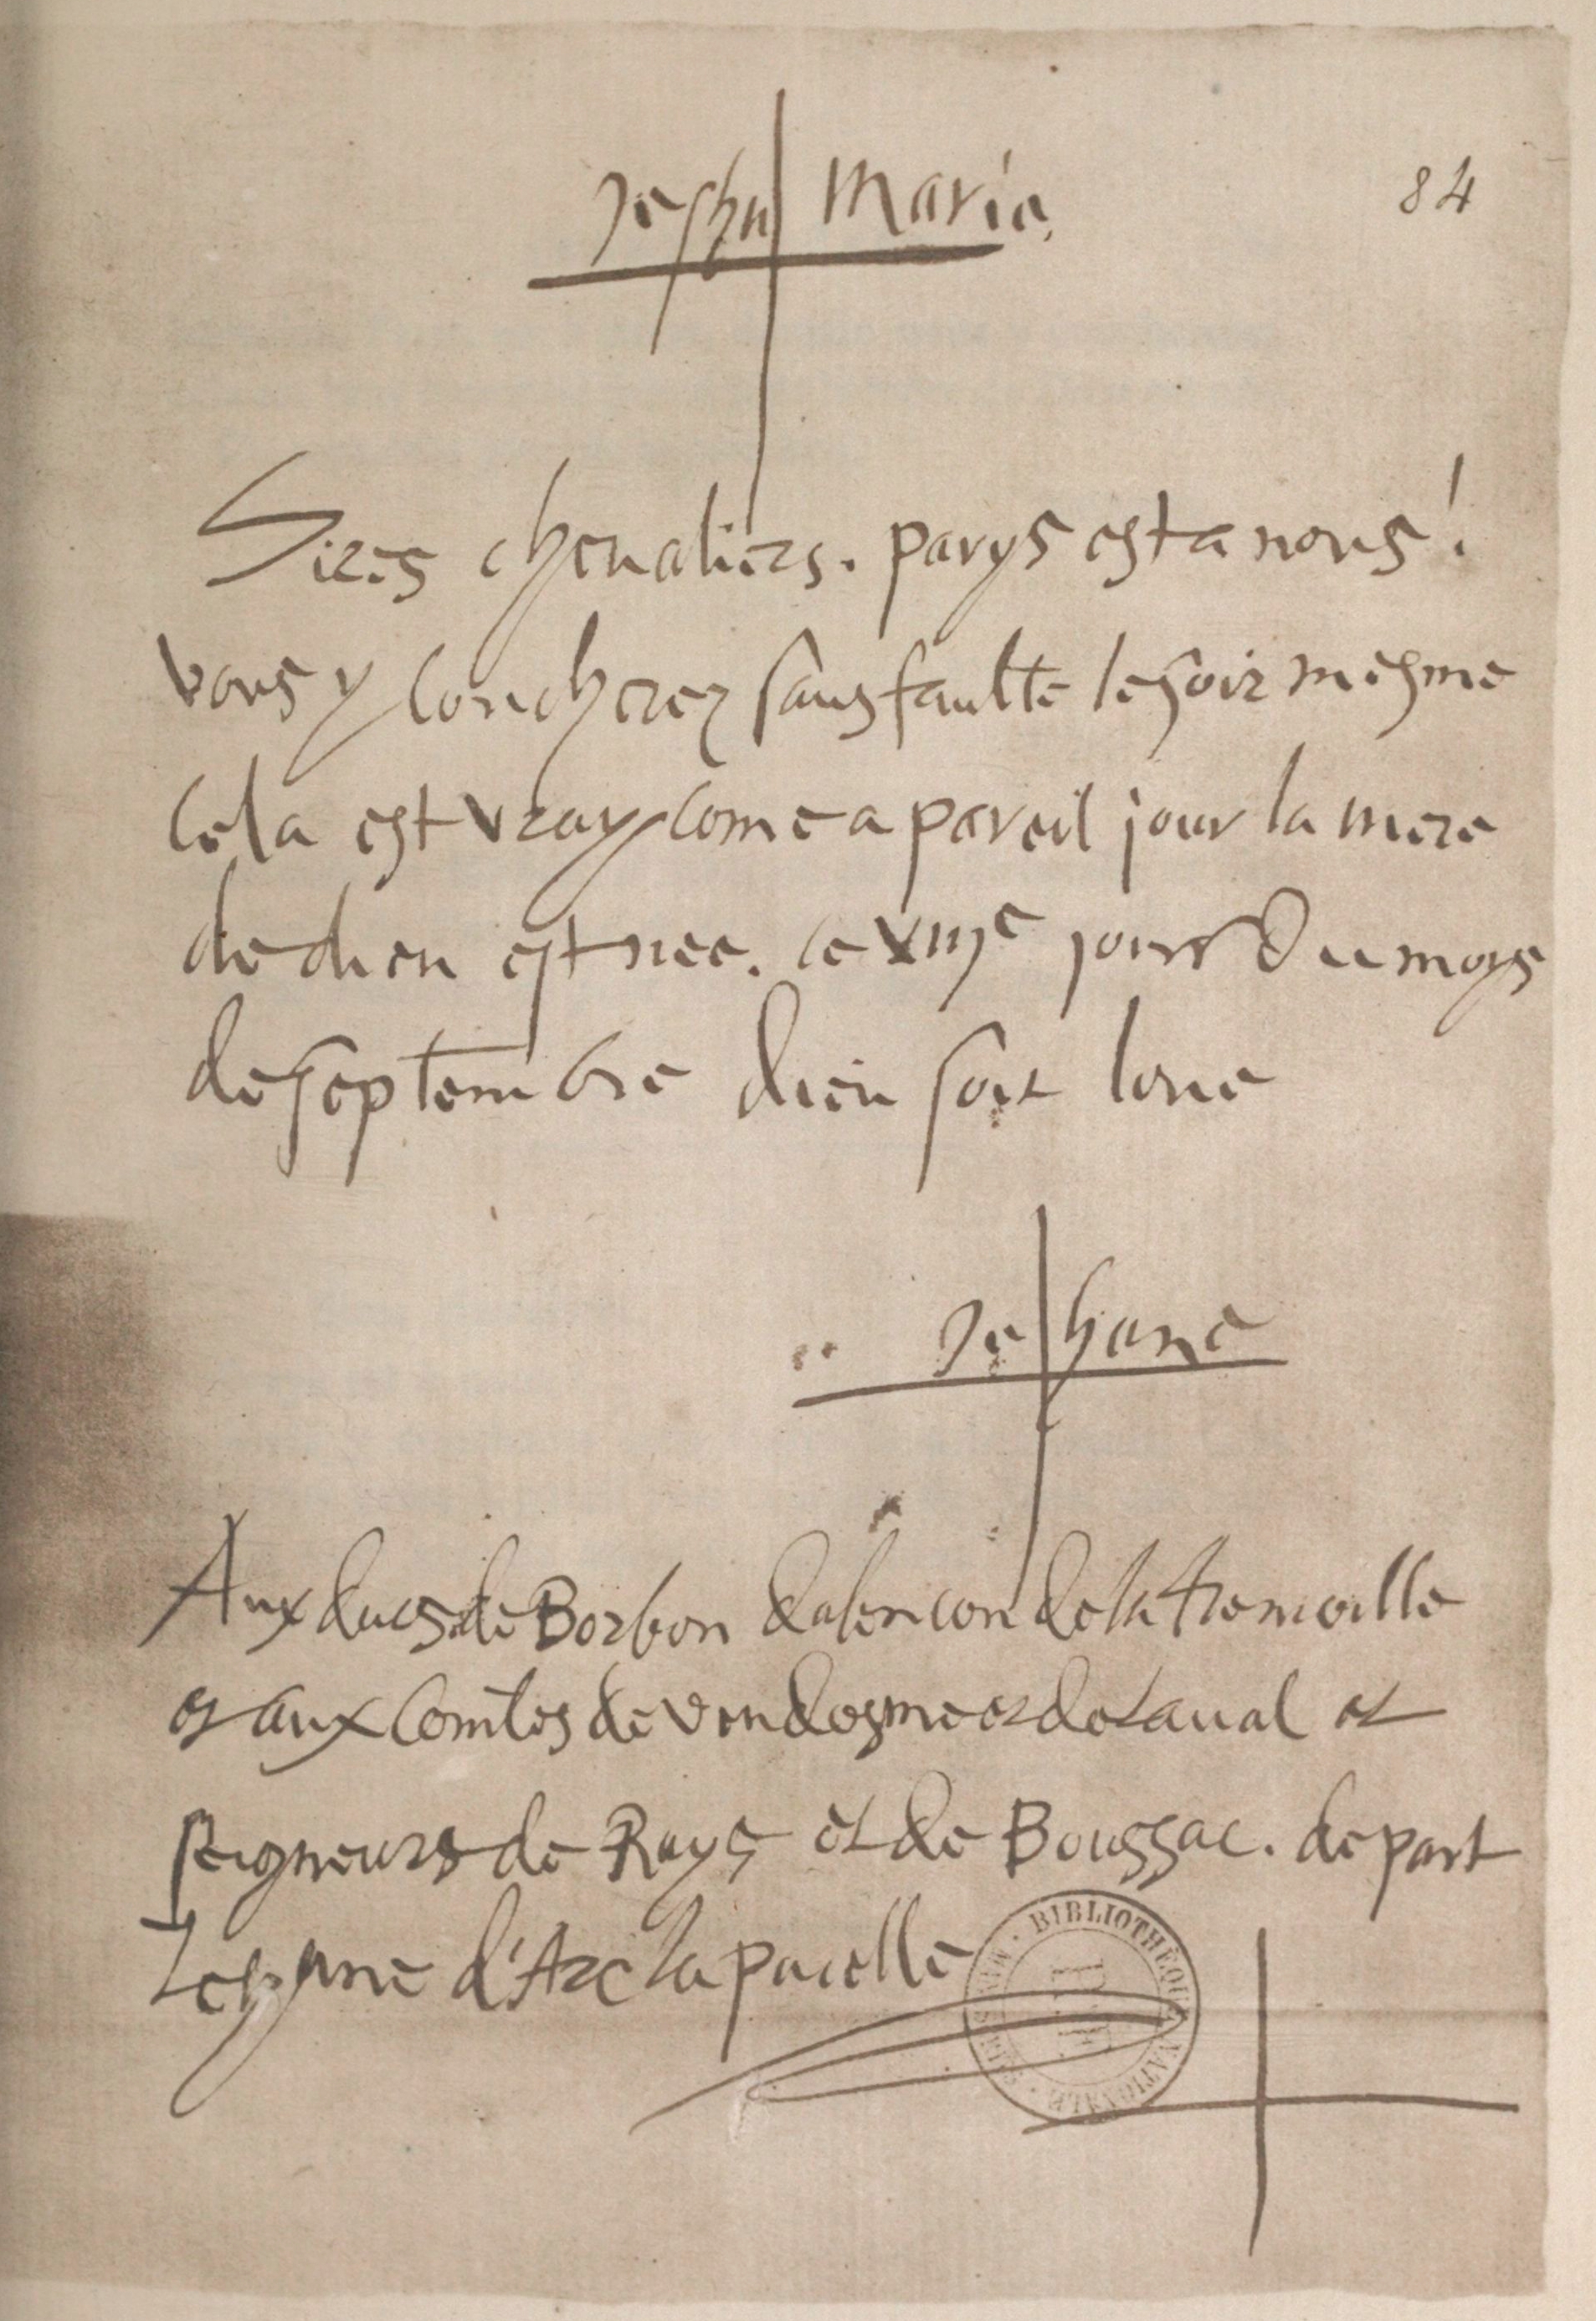 Jeshu Maria
84
Sires chevaliers. parys est a nous!
vous y coucherez sans faulte le soir mesme
cela est vray come a pareil jour la mere
de dieu est nee. le viije jour du moys
de septembre dieu soit loue
Jehane
Aux ducs de Borbon dalencon de la tremoille
et aux comtes de vendosme et de Laval et
seigneurs de Rays et de Boussac. de part
Jehanne d'Arc la pucelle
BIBLIOTHÈQUE NATIONALE